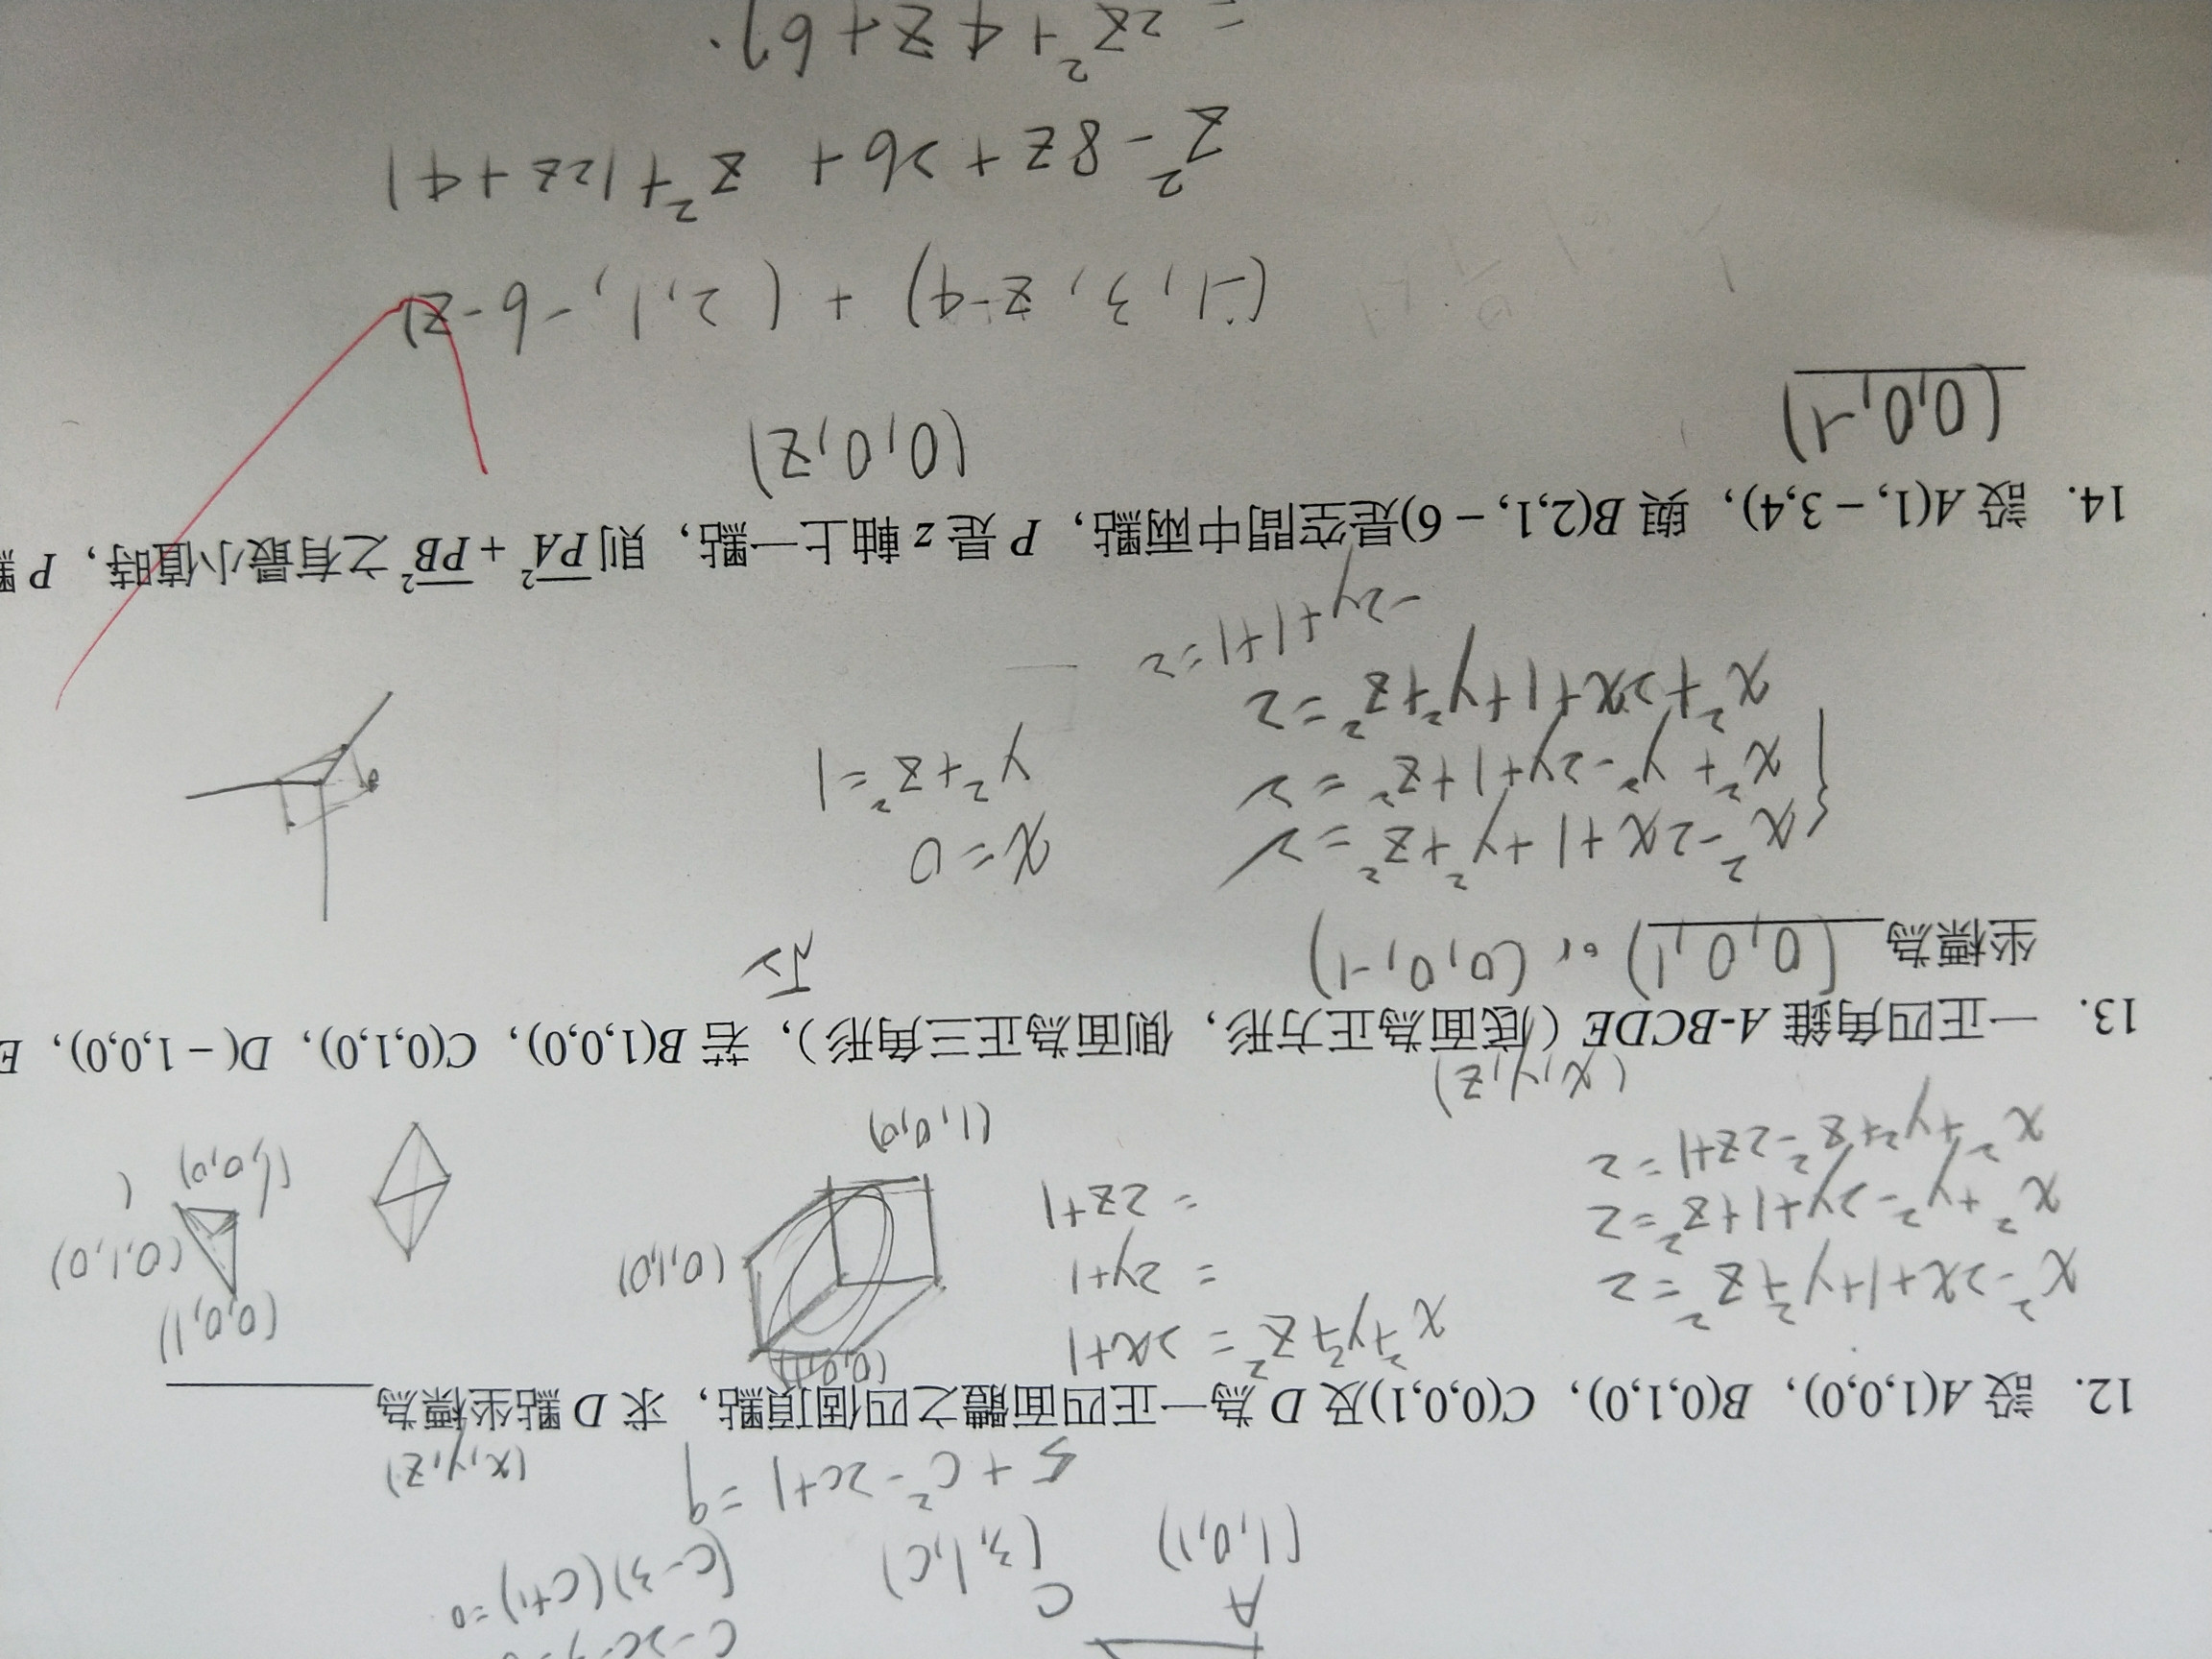 c²-2c-3=0
A
C
(c-3)(c+1)=0
(1,0,1)
(3,1,c)
5+c²-2c+1=9
(x,y,z)
12. 設 A(1,0,0)，B(0,1,0)，C(0,0,1)及 D 為一正四面體之四個頂點，求 D 點坐標為
x²-2x+1+y²+z²=2
x²+y²-2y+1+z²=2
x²+y²+z²-2z+1=2
x²+y²+z²=2x+1
=2y+1
=2z+1
(0,0,1)
(0,1,0)
(1,0,0)
(0,0,1)
(0,1,0)
(1,0,0)
(
(x,y,z)
13. 一正四角錐 A-BCDE（底面為正方形，側面為正三角形），若 B(1,0,0)，C(0,1,0)，D(－1,0,0)，E
坐標為 (0,0,1) or (0,0,-1)
√2
x²-2x+1+y²+z²=2
x²+y²-2y+1+z²=2
x²+2x+1+y²+z²=2
-2y+1+1=2
x=0
y²+z²=1
14. 設 A(1,－3,4)，與 B(2,1,－6)是空間中兩點，P 是 z 軸上一點，則 PA²+PB² 之有最小值時，P 點
(0,0,-1)
(0,0,z)
(-1,3,z-4)+(2,1,-6-z)
z²-8z+26+z²+12z+41
=2z²+4z+67.